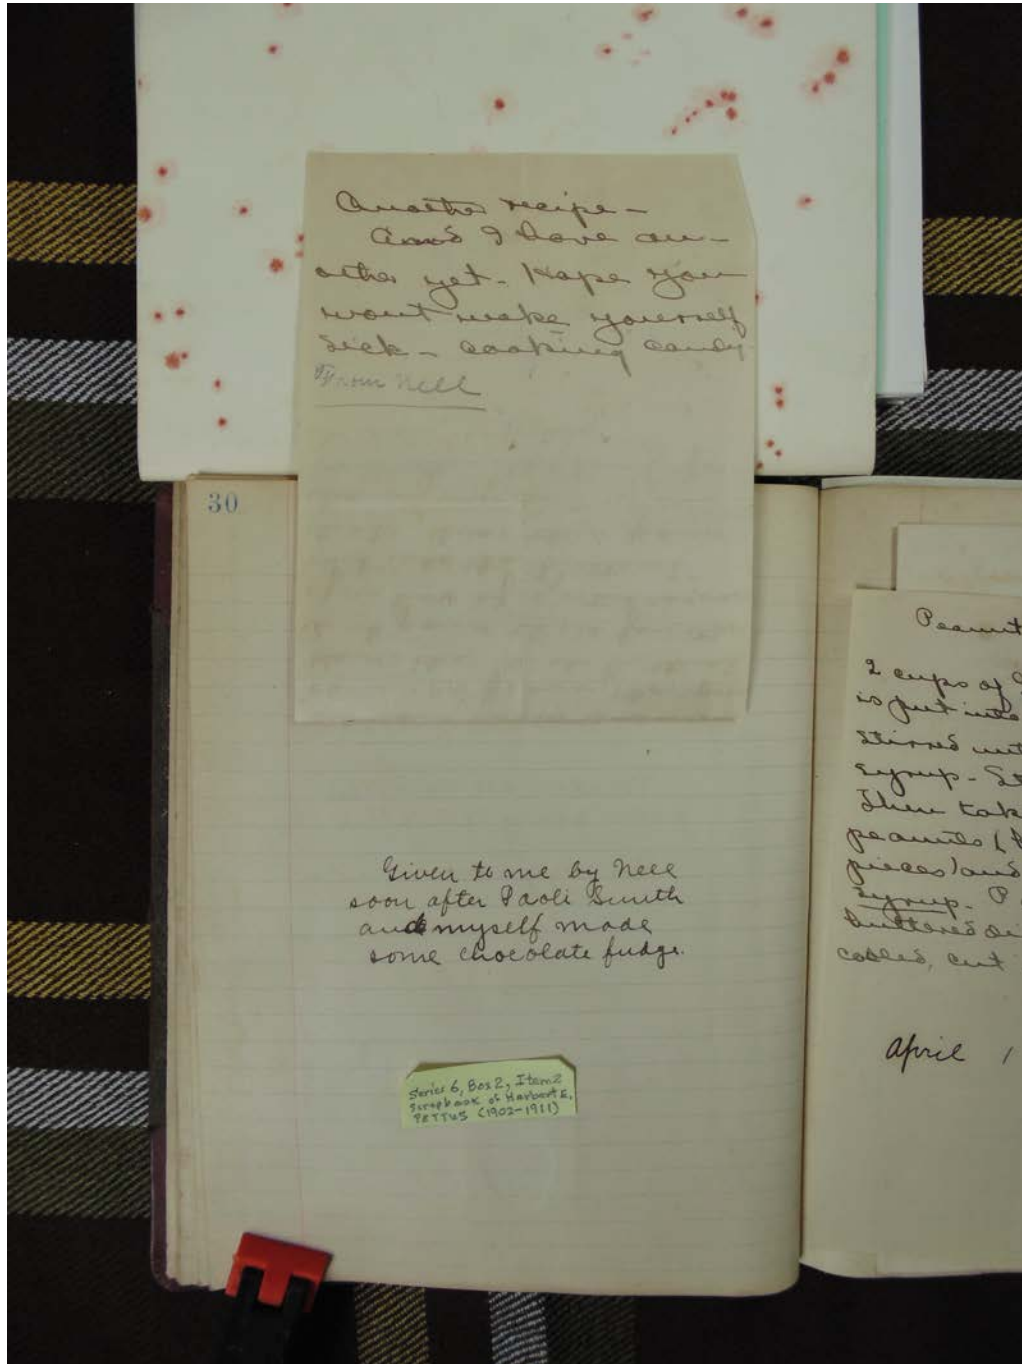 Another recipe –
Good I have an-
other yet – Hope you
wont make yourself
Sick – cooking candy
From Nell
30
Given to me by Nell
soon after Paoli Smith
and myself made
some chocolate fudge.
Series 6, Box 2, Item 2
Scrapbook of Harbert E.
PETTUS (1902-1911)
Peanut
2 cups of
is put into
Stirred
Syrup – St
Then take
peanuts (
pieces) and
Syrup. P
buttered
cooled, cut
April 1